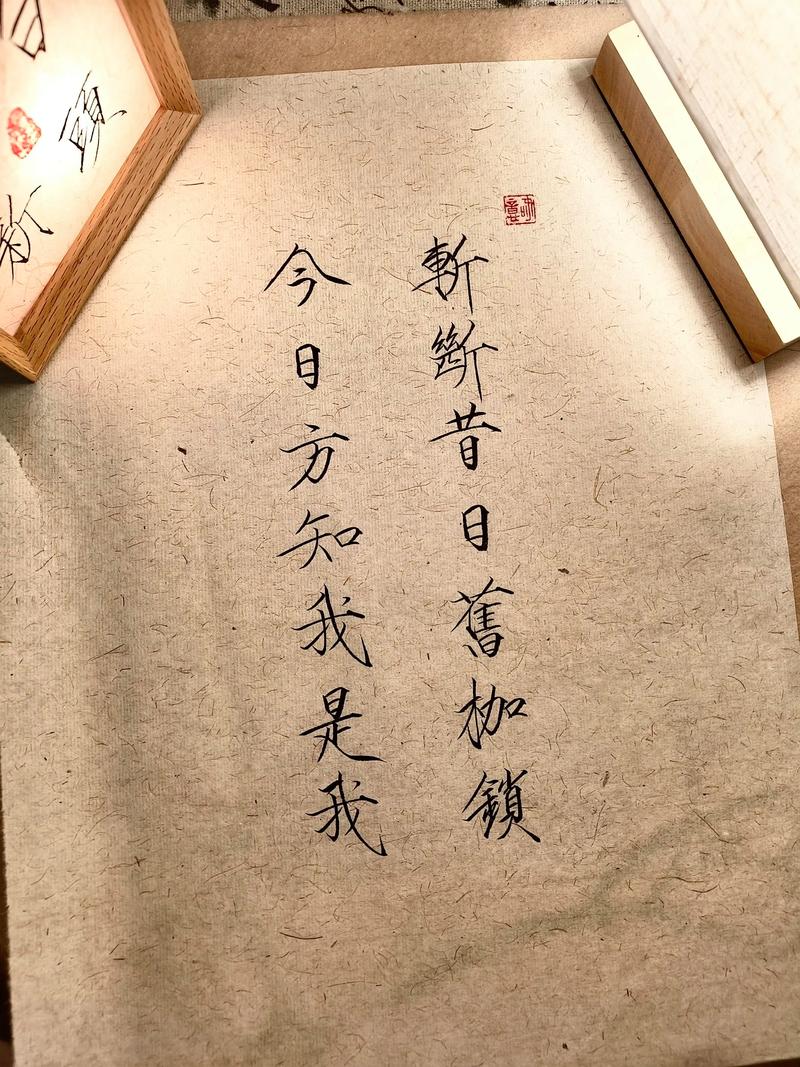 斬斷昔日舊枷鎖
今日方知我是我
頭
新